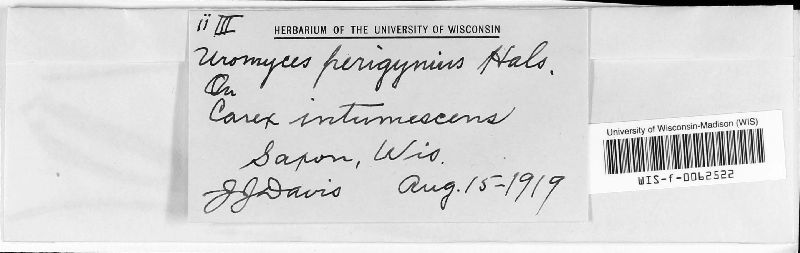 ii III
HERBARIUM OF THE UNIVERSITY OF WISCONSIN
Uromyces perigynius Hals.
On
Carex intumescens
Saxon, Wis.
J J Davis Aug. 15-1919
University of Wisconsin-Madison (WIS)
WIS-f-0062522